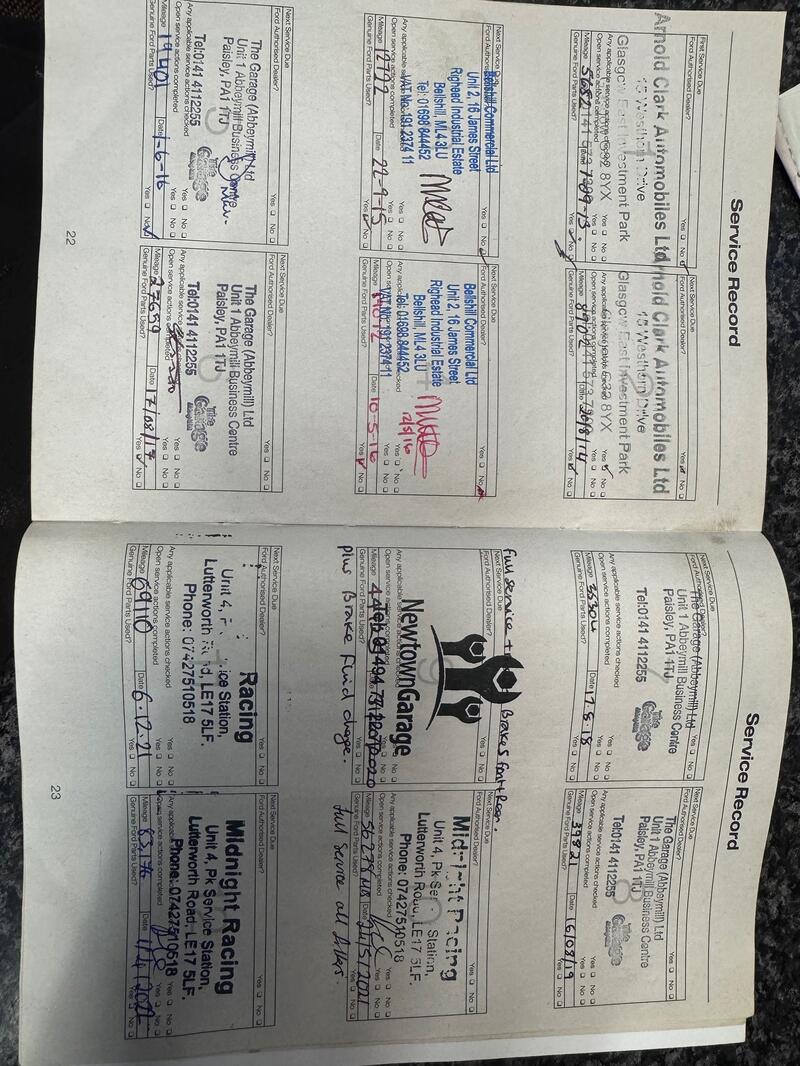 Service Record
First Service Due
Ford Authorised Dealer?
Yes No
Arnold Clark Automobiles Ltd
15 Westhorn Drive
Glasgow East Investment Park
Any applicable service actions checked
Open service actions completed
Mileage 5682
Genuine Ford Parts Used?
Yes No
Next Service Due
Ford Authorised Dealer?
Yes No
Arnold Clark Automobiles Ltd
15 Westhorn Drive
Glasgow East Investment Park
Any applicable service actions checked
Open service actions completed
Mileage 8902
Date 20/8/14
Genuine Ford Parts Used?
Yes No
Next Service Due
Ford Authorised Dealer?
Bellshill Commercial Ltd
Unit 2, 16 James Street
Righead Industrial Estate
Bellshill, ML4 3LU
Tel: 01698 844452
VAT No: 191 2374 11
Open service actions completed
Mileage
Date 22-9-15
Genuine Ford Parts Used?
Yes No
Next Service Due
Ford Authorised Dealer?
Yes No
Bellshill Commercial Ltd
Unit 2, 16 James Street
Righead Industrial Estate
Bellshill, ML4 3LU
Tel: 01698 844452
VAT No: 191 2374 11
12/5/16
Mileage
Date 10-5-16
Genuine Ford Parts Used?
Yes No
Next Service Due
Ford Authorised Dealer?
The Garage (Abbeymill) Ltd
Unit 1 Abbeymill Business Centre
Paisley, PA1 1TJ
Tel:0141 4112255
The Garage
Any applicable service actions checked
Open service actions completed
Yes No
Yes No
Mileage 19401
Date 1-6-16
Genuine Ford Parts Used?
Yes No
Next Service Due
Ford Authorised Dealer?
Yes No
The Garage (Abbeymill) Ltd
Unit 1 Abbeymill Business Centre
Paisley, PA1 1TJ
Tel:0141 4112255
The Garage
Any applicable service
Open service actions completed
Yes No
Yes No
Mileage 27659
Date 17/08/17
Genuine Ford Parts Used?
Yes No
22
Service Record
Next Service Due
Ford Authorised Dealer?
Yes No
The Garage (Abbeymill) Ltd
Unit 1 Abbeymill Business Centre
Paisley, PA1 1TJ
Tel:0141 4112255
The Garage
Any applicable service actions checked
Open service actions completed
Mileage 35304
Date 17.8.18
Genuine Ford Parts Used?
Yes No
Next Service Due
Ford Authorised Dealer?
Yes No
The Garage (Abbeymill) Ltd
Unit 1 Abbeymill Business Centre
Paisley, PA1 1TJ
Tel:0141 4112255
The Garage
Any applicable service actions checked
Open service actions completed
Yes No
Yes No
Mileage 39821
Date 16/08/19
Genuine Ford Parts Used?
Yes No
Full service + Brakes front + Rear.
Next Service Due
Ford Authorised Dealer?
Yes No
Newtown Garage
Any applicable service actions checked
Open service actions completed
Mileage
Genuine Ford Parts Used?
Yes No
plus Brake Fluid change.
Next Service Due
Ford Authorised Dealer?
Yes No
Midnight Racing
Unit 4, Pk Service Station,
Lutterworth Road, LE17 5LF.
Phone: 07427510518
Any applicable service actions checked
Open service actions completed
Yes No
Yes No
Mileage
Date
Genuine Ford Parts Used?
Yes No
full service all filters.
Next Service Due
Ford Authorised Dealer?
Yes No
Racing
Unit 4,
Station,
Lutterworth LE17 5LF.
Phone: 07427510518
Any applicable service actions checked
Open service actions completed
Yes No
Yes No
Mileage 69110
Date 6.12.21
Genuine Ford Parts Used?
Yes No
Next Service Due
Ford Authorised Dealer?
Yes No
Midnight Racing
Unit 4, Pk Service Station,
Lutterworth Road, LE17 5LF.
Phone: 07427510518
Any applicable service actions checked
Open service actions completed
Yes No
Mileage 83,176
Date
Genuine Ford Parts Used?
Yes No
23